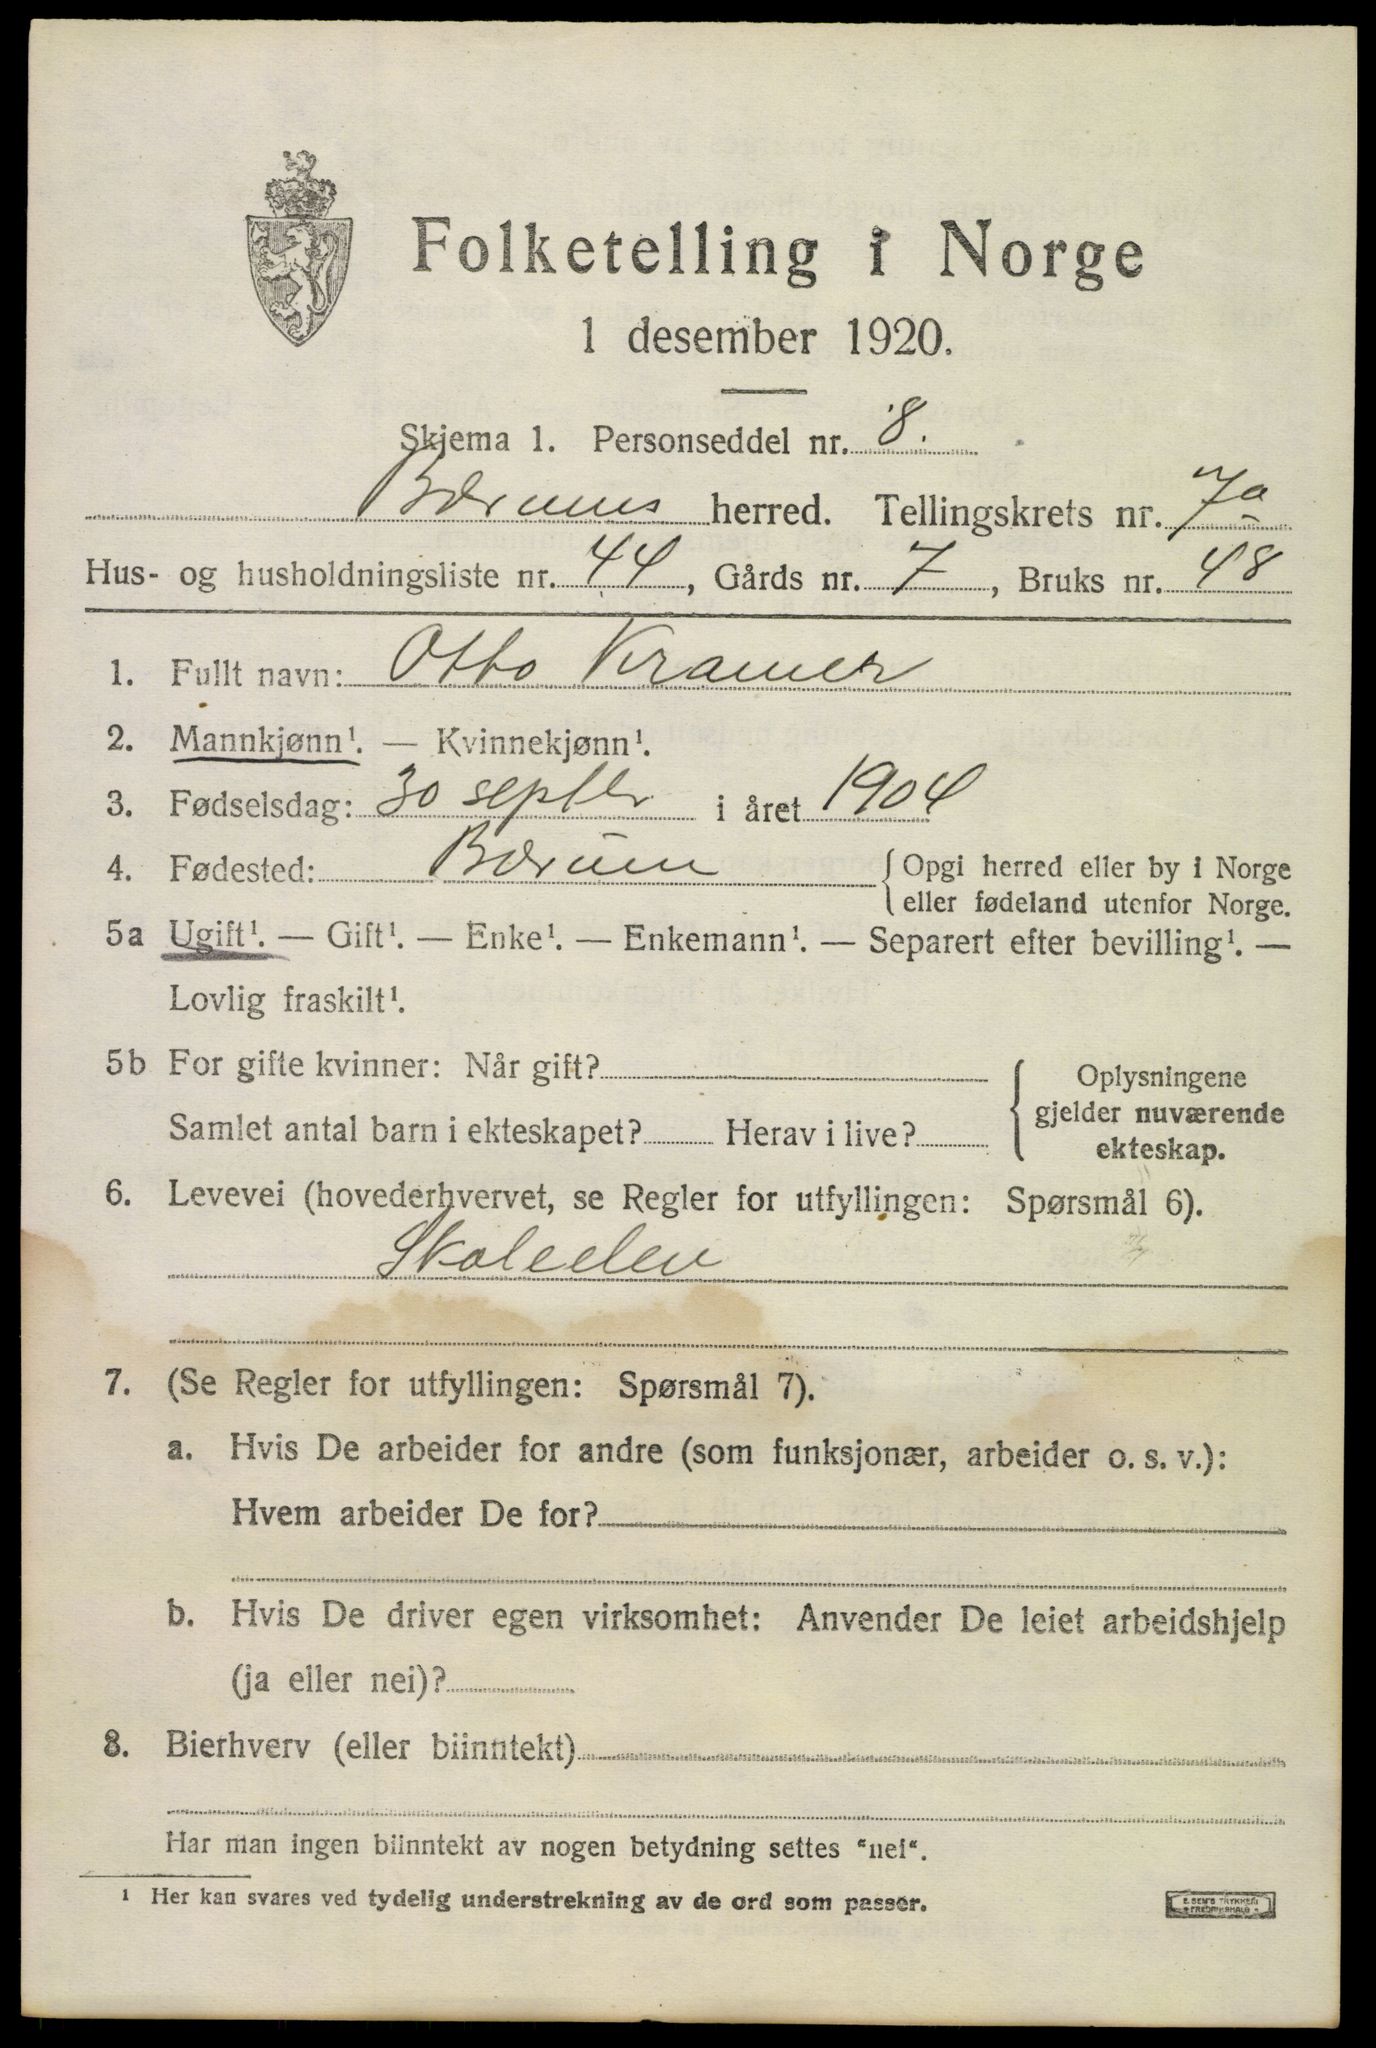 Folketelling i Norge
1 desember 1920.
Skjema 1. Personseddel nr. 8.
Bærums herred. Tellingskrets nr. 7a
Hus- og husholdningsliste nr. 44, Gårds nr. 7, Bruks nr. 48
1. Fullt navn: Otto Kramer
2. Mannkjønn¹. — Kvinnekjønn¹.
3. Fødselsdag: 30 septbr i året 1904
4. Fødested: Bærum { Opgi herred eller by i Norge
eller fødeland utenfor Norge.
5a Ugift¹. — Gift¹. — Enke¹. — Enkemann¹. — Separert efter bevilling¹. —
Lovlig fraskilt¹.
5b For gifte kvinner: Når gift?
Samlet antal barn i ekteskapet? Herav i live?
{ Oplysningene
gjelder nuværende
ekteskap.
6. Levevei (hovederhvervet, se Regler for utfyllingen: Spørsmål 6).
Skoleelev
7. (Se Regler for utfyllingen: Spørsmål 7).
a. Hvis De arbeider for andre (som funksjonær, arbeider o. s. v.):
Hvem arbeider De for?
b. Hvis De driver egen virksomhet: Anvender De leiet arbeidshjelp
(ja eller nei)?
8. Bierhverv (eller biinntekt)
Har man ingen biinntekt av nogen betydning settes "nei".
¹ Her kan svares ved tydelig understrekning av de ord som passer.
E. SEM'S TRYKKERI
FREDRIKSHALD